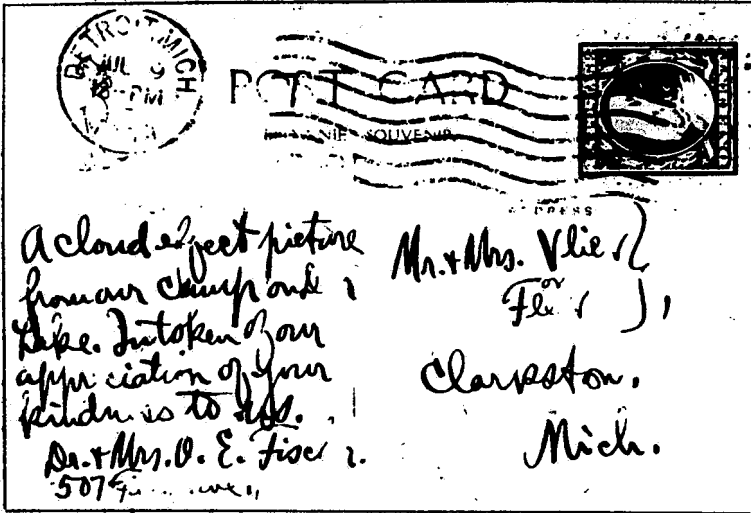 DETROIT, MICH.
JUL 9
PM
POST CARD
SOUVENIR
ADDRESS
A cloud effect picture
from our camp on
Lake. In token of our
appreciation of your
kindness to us.
Dr. & Mrs. O. E. Fisc
507
Mr. & Mrs. Vlie
or
Fle
Clarkston,
Mich.